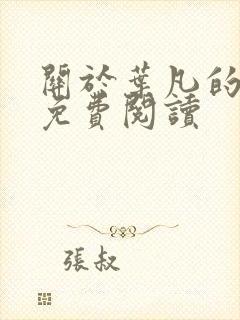 關於葉凡的
免費閱讀
張叔